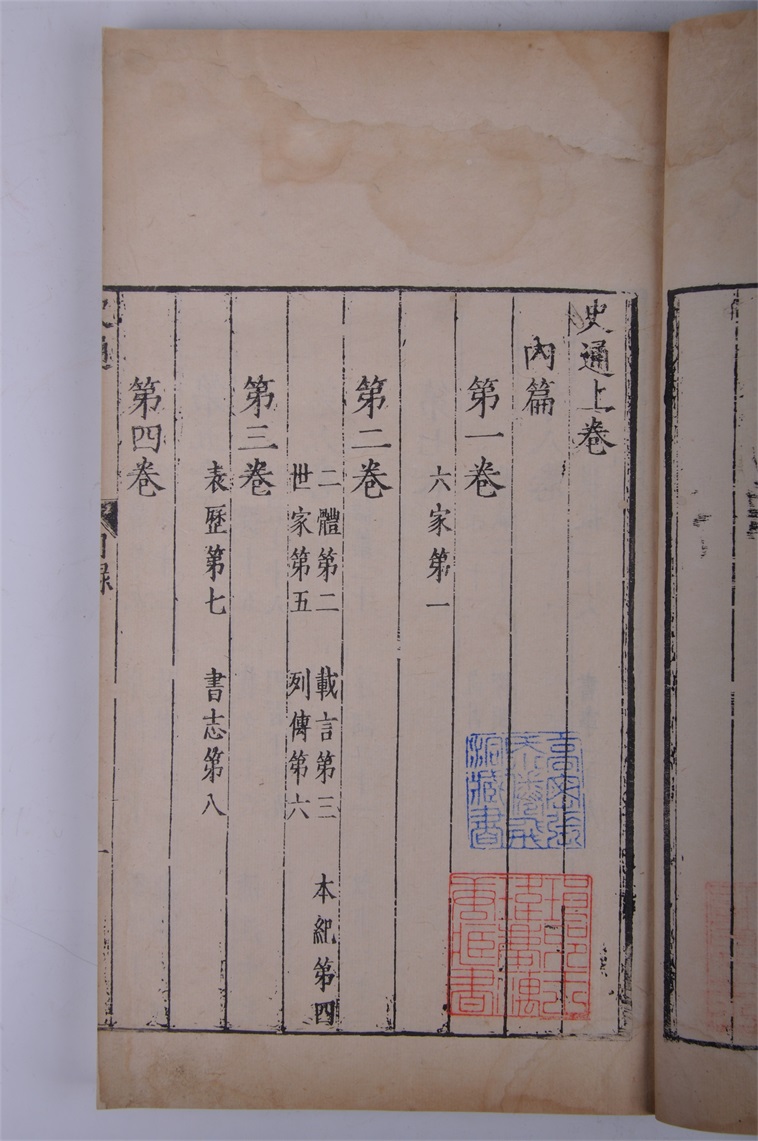 史通上卷
內篇
第一卷
六家第一
第二卷
二體第二 載言第三 本紀第四
世家第五 列傳第六
第三卷
表歷第七 書志第八
第四卷
史通
目錄